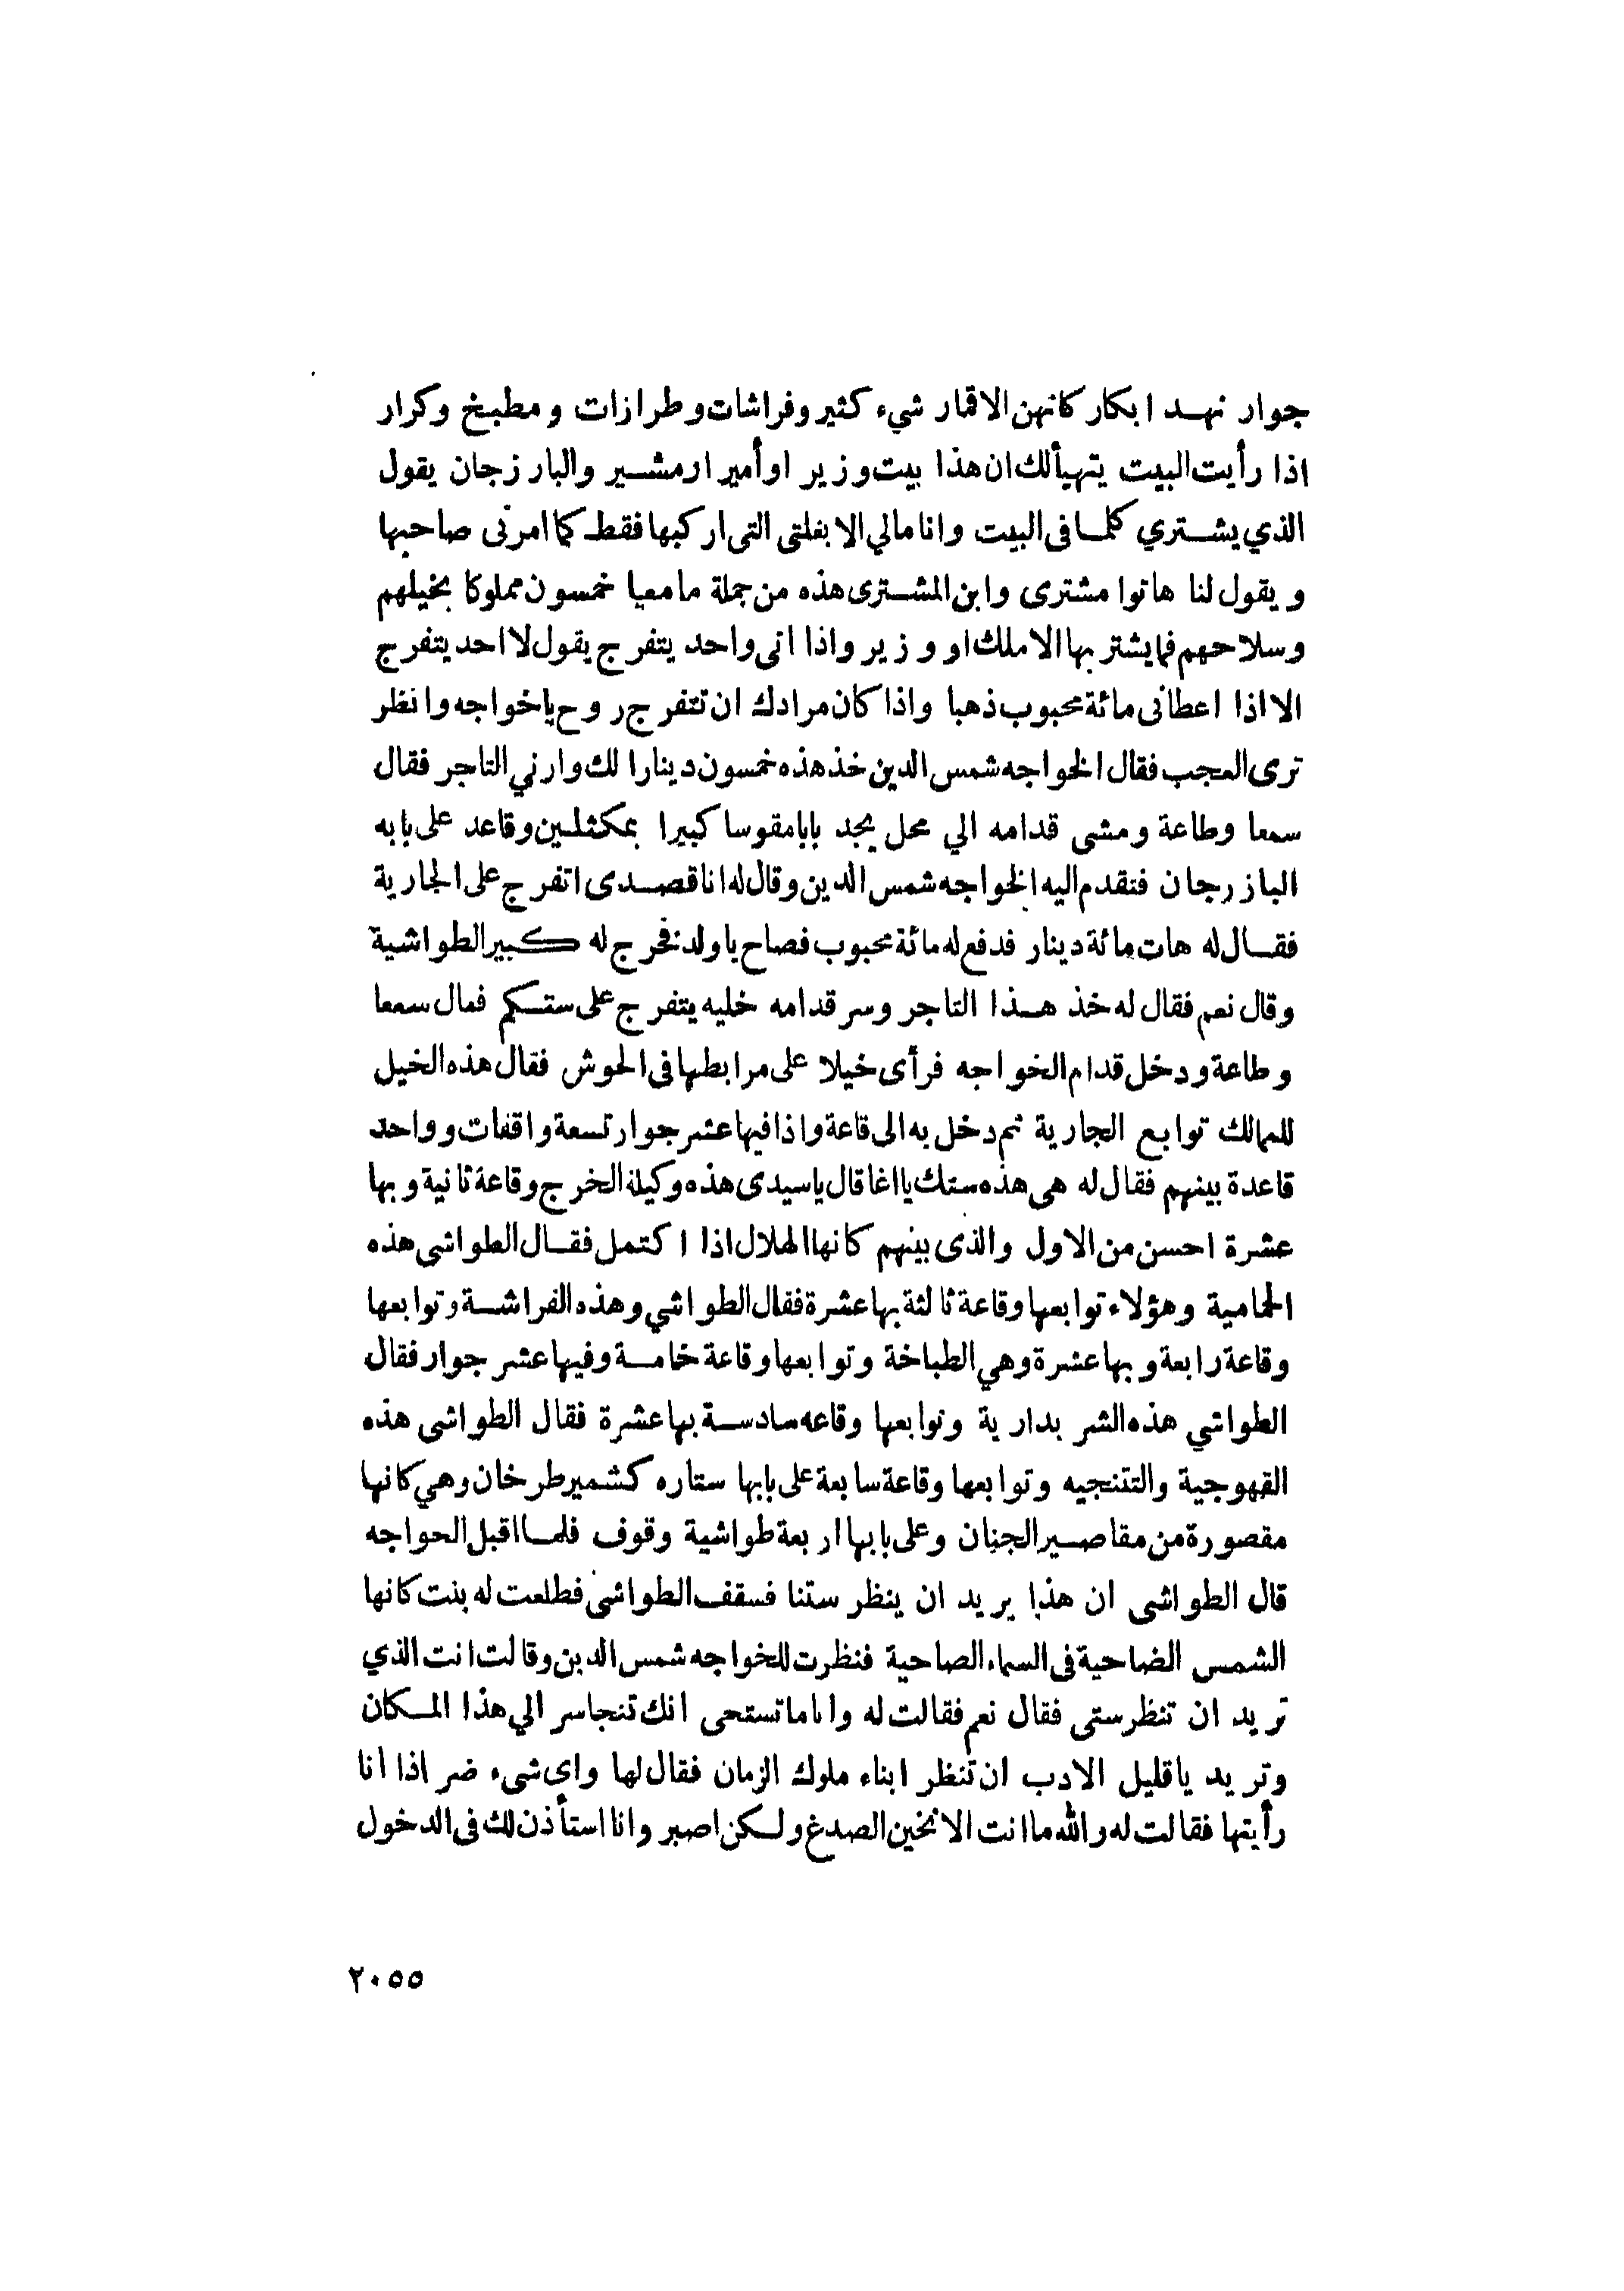 جوار نهد ابكار كانهن الاقمار شيء كثير وفراشات وطرازات ومطبخ وكرار
اذا رأيت البيت يتهيألك ان هذا بيت وزير او أمير ارمشير والبار زجان يقول
الذي يشتري كلما فى البيت وانا مالي الا بغلتى التى اركبها فقط كما امرنى صاحبها
ويقول لنا هاتوا مشترى وابن المشترى هذه من جملة ما معها خمسون مملوكا بخيلهم
وسلاحهم فما يشتربها الا ملك او وزير واذا اتى واحد يتفرج يقول لا احد يتفرج
الا اذا اعطانى مائة محبوب ذهبا واذا كان مرادك ان تتفرج روح ياخواجه وانظر
ترى العجب فقال الخواجه شمس الدين خذ هذه خمسون دينارا لك وارني التاجر فقال
سمعا وطاعة ومشى قدامه الي محل يجد بابا مقوسا كبيرا بمكثلين وقاعد على بابه
البازرجان فتقدم اليه الخواجه شمس الدين وقال له انا قصدى اتفرج على الجارية
فقال له هات مائة دينار فدفع له مائة محبوب فصاح ياولد فخرج له كبير الطواشية
وقال نعم فقال له خذ هذا التاجر وسر قدامه خليه يتفرج على ستكم فقال سمعا
وطاعة ودخل قدام الخواجه فرأى خيلا على مرابطها فى الحوش فقال هذه الخيل
للممالك توابع الجارية ثم دخل به الى قاعة واذا فيها عشر جوار تسعة واقفات وواحد
قاعدة بينهم فقال له هى هذه ستك يا اغا قال ياسيدى هذه وكيلة الخرج وقاعة ثانية وبها
عشرة احسن من الاول والذى بينهم كانها الهلال اذا اكتمل فقال الطواشى هذه
الحمامية وهؤلاء توابعها وقاعة ثالثة بها عشرة فقال الطواشي وهذه الفراشة وتوابعها
وقاعة رابعة وبها عشرة وهي الطباخة وتوابعها وقاعة خامسة وفيها عشر جوار فقال
الطواشي هذه الشربدارية وتوابعها وقاعه سادسة بها عشرة فقال الطواشى هذه
القهوجية والتتنجيه وتوابعها وقاعة سابعة على بابها ستاره كشمير طرخان وهي كانها
مقصورة من مقاصير الجنان وعلى بابها اربعة طواشية وقوف فلما اقبل الحواجه
قال الطواشى ان هذا يريد ان ينظر ستنا فسقف الطواشى فطلعت له بنت كانها
الشمس الضاحية فى السماء الصاحية فنظرت للخواجه شمس الدين وقالت انت الذي
تريد ان تنظر ستى فقال نعم فقالت له واما ما تستحى انك تتجاسر الي هذا المكان
وتريد ياقليل الادب ان تنظر ابناء ملوك الزمان فقال لها واى شىء ضر اذا انا
رأيتها فقالت له والله ما انت الا تخين الصدغ ولكن اصبر وانا استأذن لك فى الدخول
٢٠٥٥